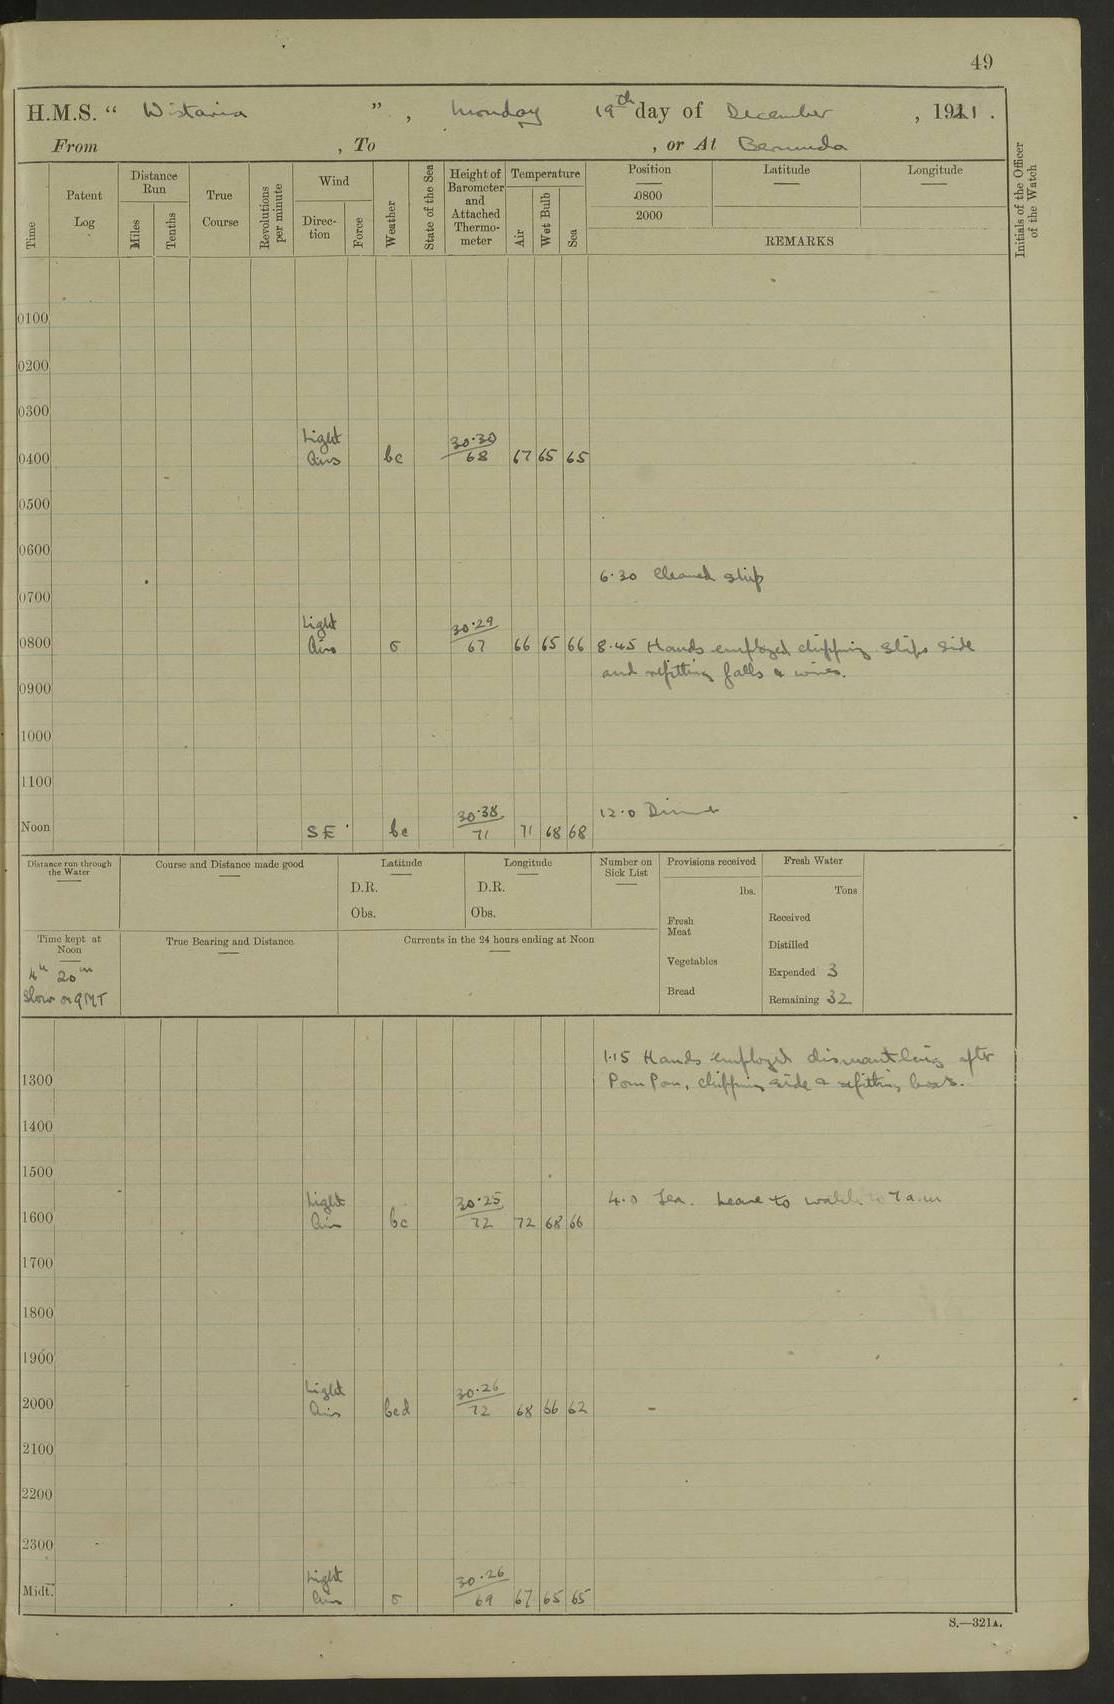 49
H.M.S. “ Wistaria ”, Monday 19th day of December , 1921.
From , To , or At Bermuda
Time
Patent Log
Distance Run
Miles
Tenths
True Course
Revolutions per minute
Wind
Direc-tion
Force
Weather
State of the Sea
Height of Barometer and Attached Thermo-meter
Temperature
Air
Wet Bulb
Sea
Position
0800
2000
Latitude
Longitude
REMARKS
Initials of the Officer of the Watch
0100
0200
0300
0400 Light Airs bc 30.30 68 67 65 65
0500
0600
6.30 Cleaned ship
0700
0800 Light Airs o 30.29 67 66 65 66 8.45 Hands employed chipping ships side
and refitting falls & wires.
0900
1000
1100
12.0 Dinner
Noon SE bc 30.38 71 71 68 68
Distance run through the Water
Course and Distance made good
Latitude
D.R.
Obs.
Longitude
D.R.
Obs.
Number on Sick List
Provisions received
lbs.
Fresh Meat
Vegetables
Bread
Fresh Water
Tons
Received
Distilled
Expended 3
Remaining 32
Time kept at Noon
4h 20m
Slow on GMT
True Bearing and Distance
Currents in the 24 hours ending at Noon
1.15 Hands employed dismantling after
1300 Pom Pom, chipping side & refitting
1400
1500
1600 Light Air bc 30.25 72 72 68 66 4.0 Tea. Leave to watch to 7 a.m
1700
1800
1900
2000 Light Airs bcd 30.26 72 68 66 62
2100
2200
2300
Midt. Light Airs o 30.26 69 67 65 65
S.—321A.